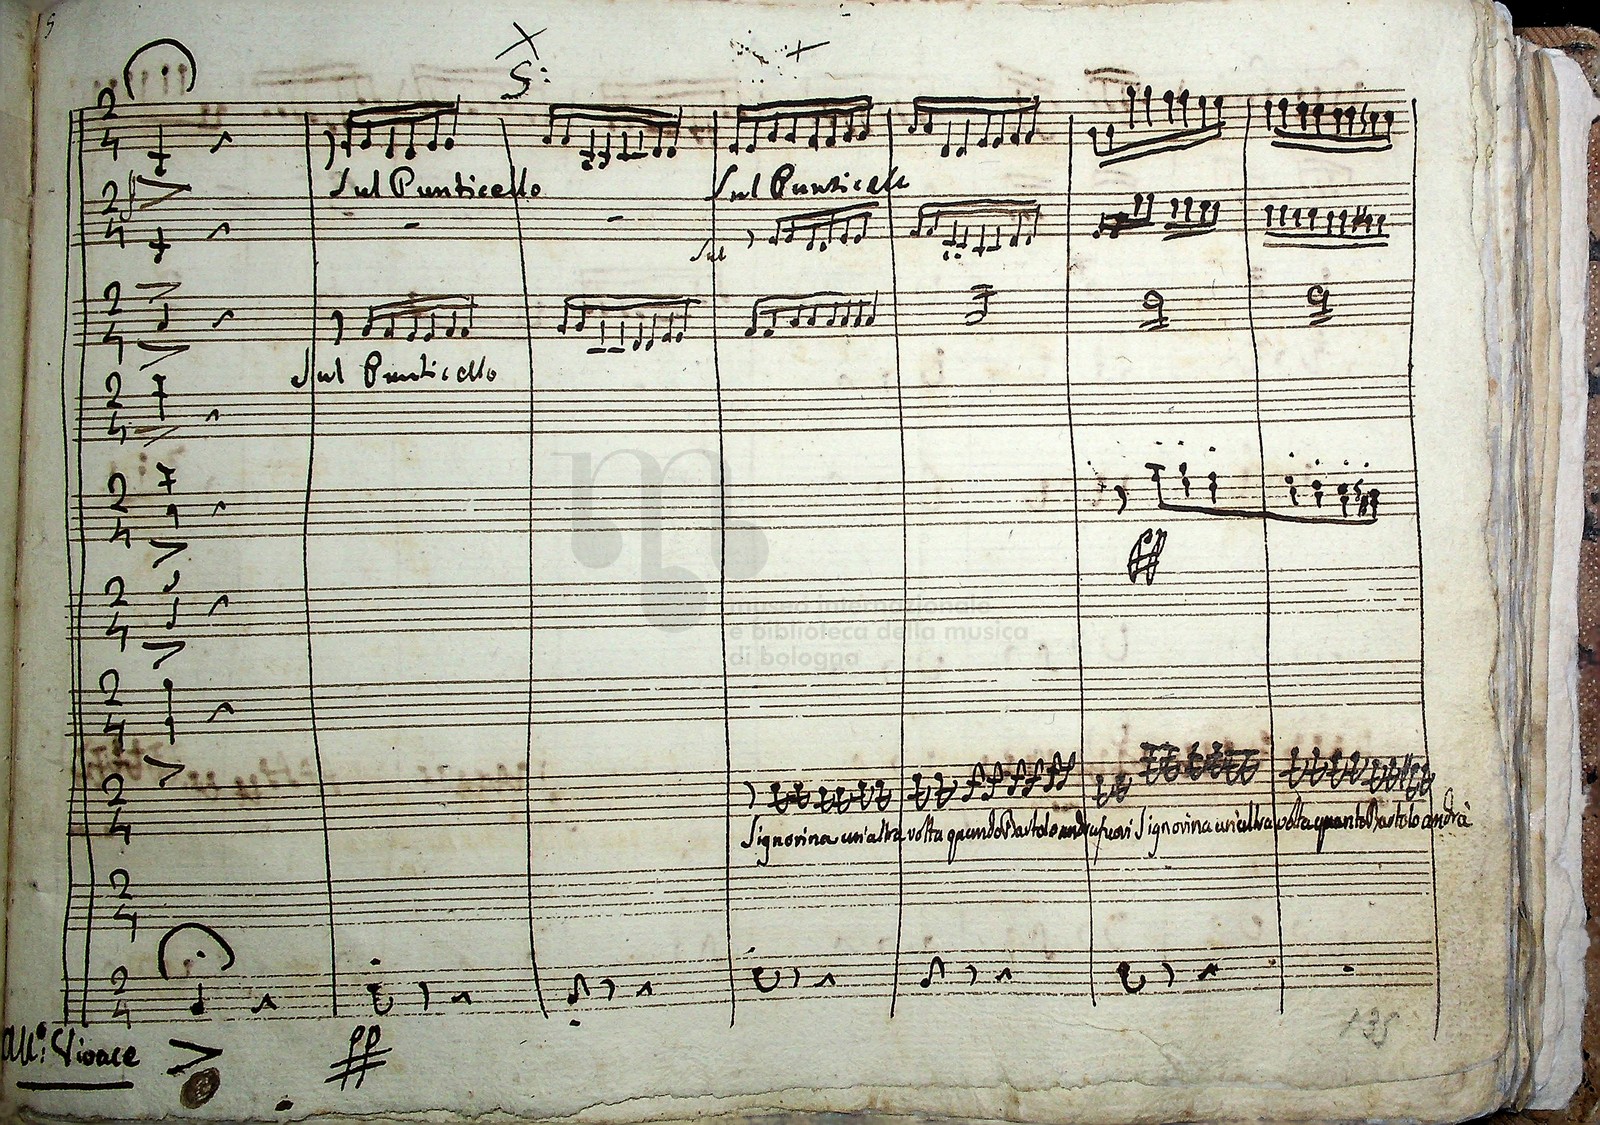 S:
Sul Punticello
Sul Punticello
Sul
Sul Punticello
ff
museo internazionale
e biblioteca della musica
di bologna
Signorina un'altra volta quando Bartolo andrà fuori Signorina un'altra volta quanto Bartolo andrà
135
All.º Vivace
pp